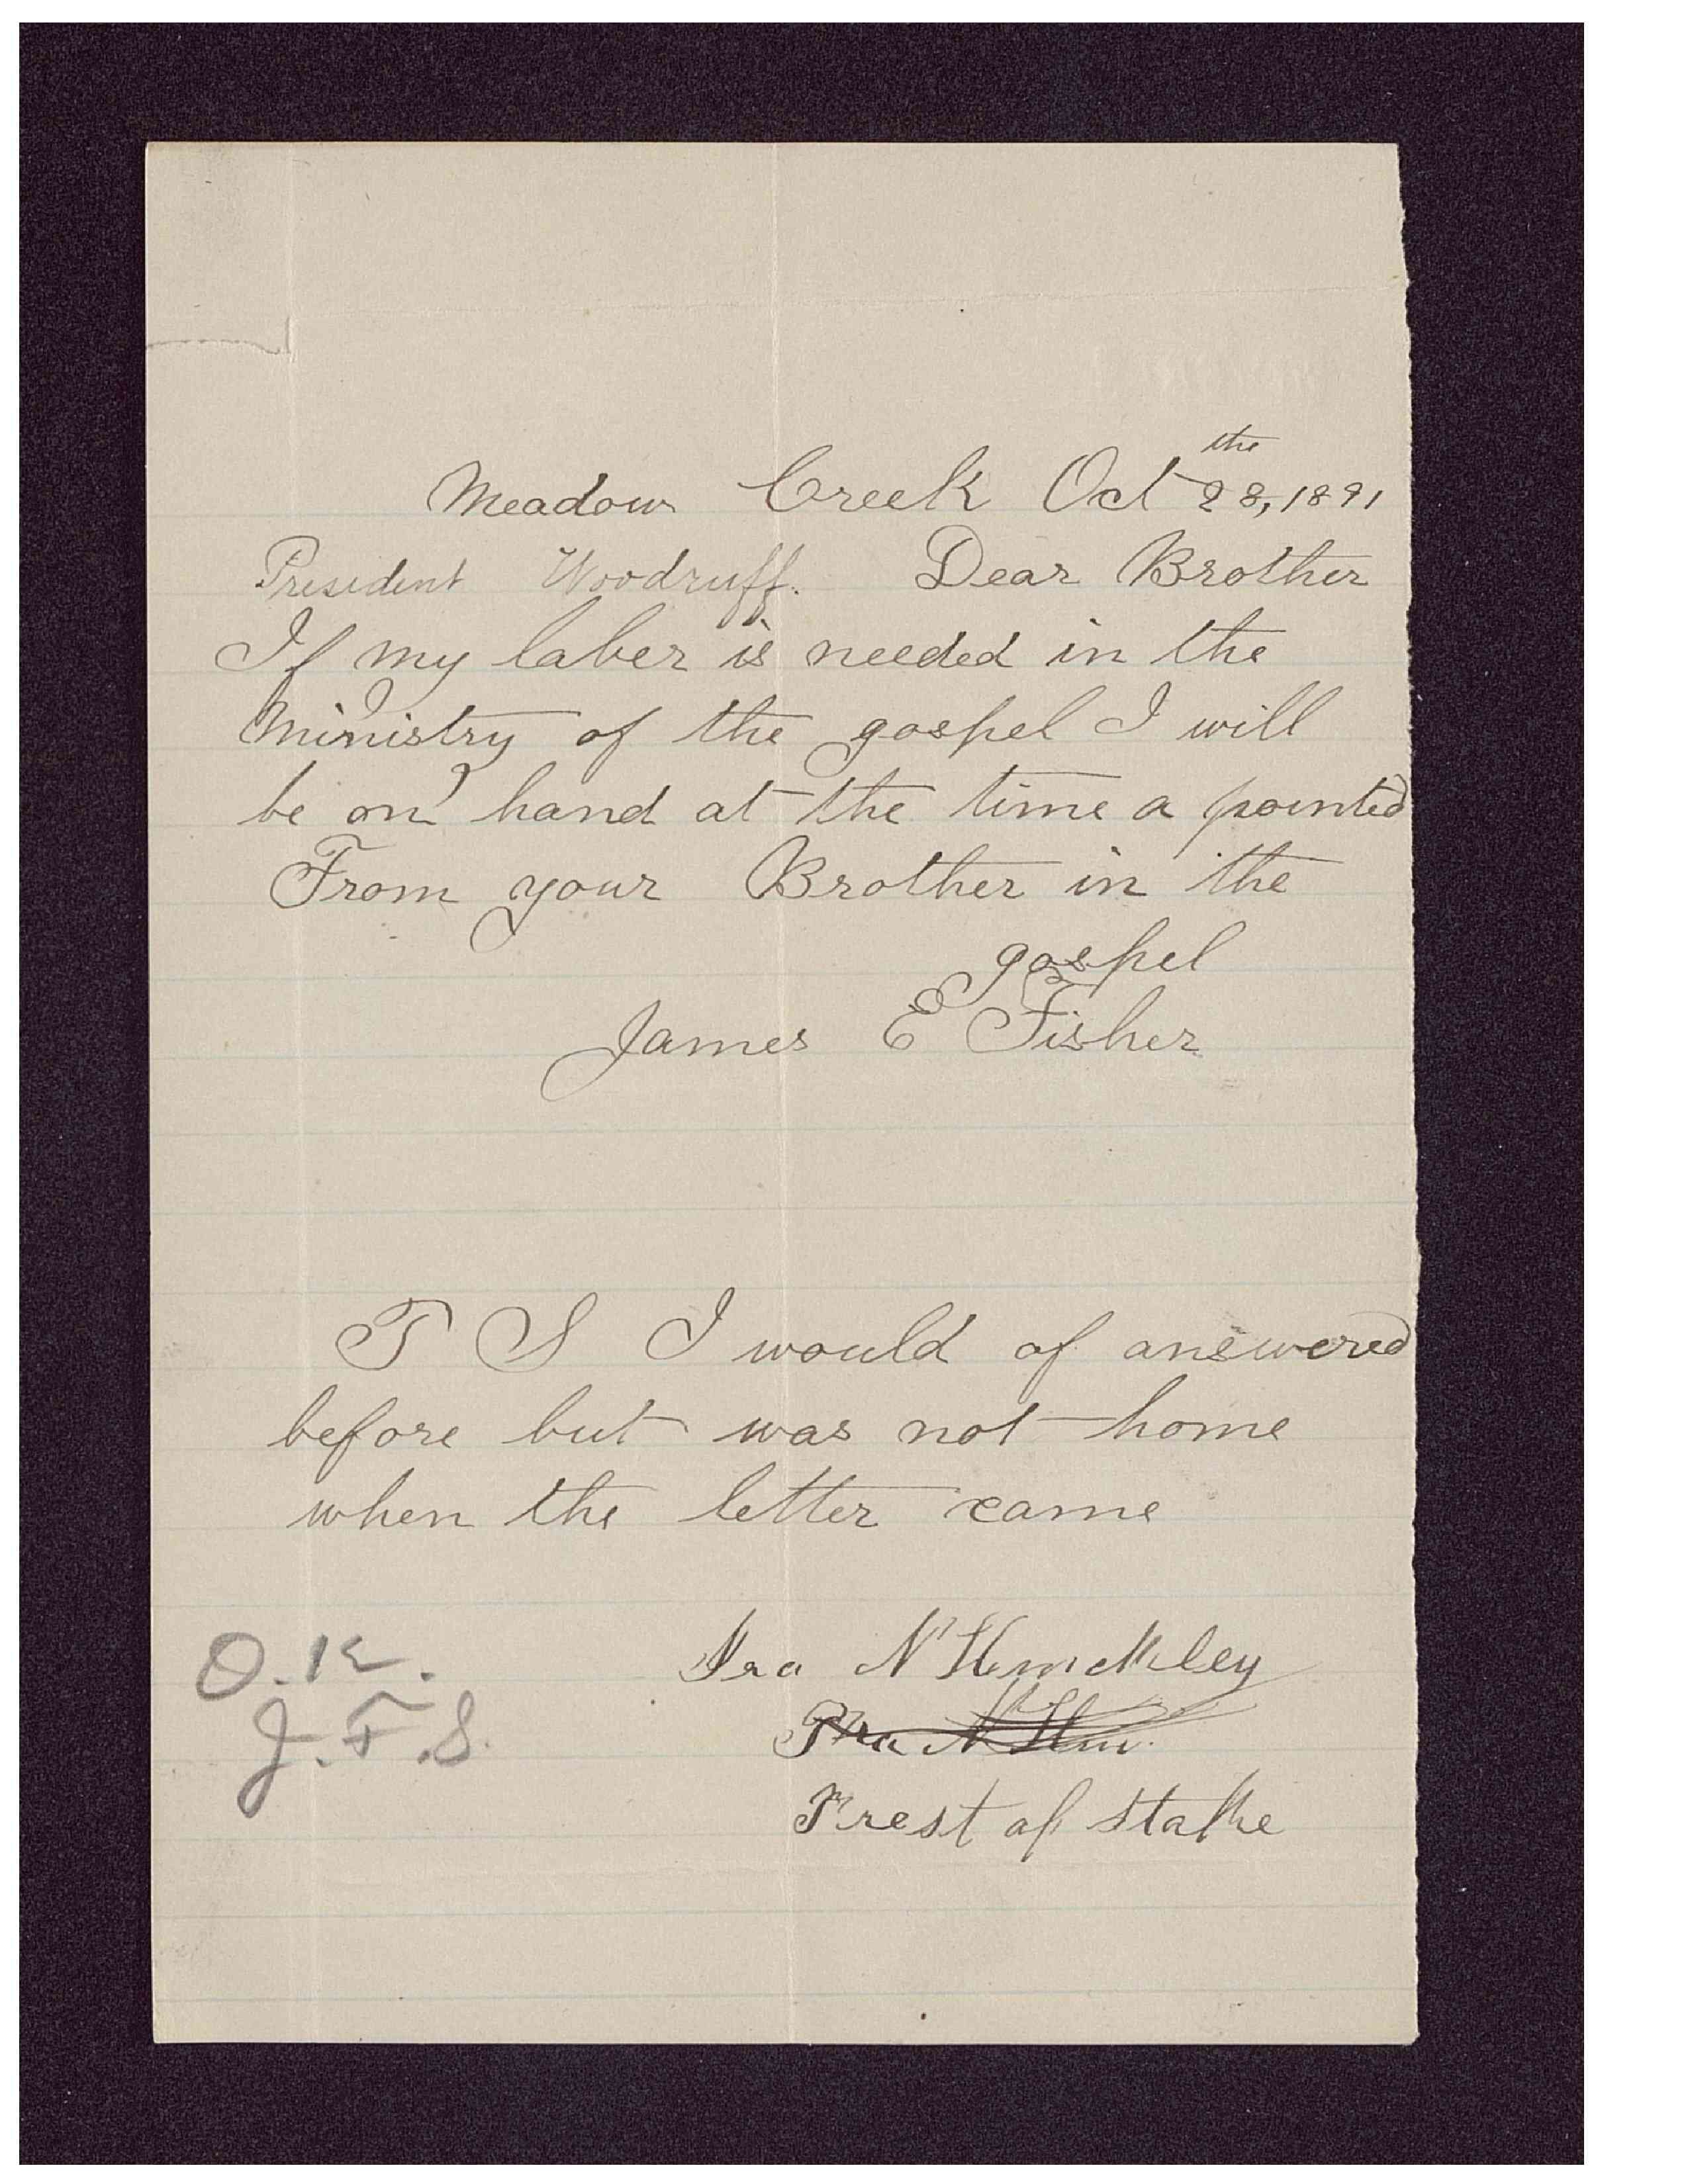 Meadow Creek Oct 28, the 1891
President Woodruff. Dear Brother
If my laber is needed in the
Ministry of the gospel I will
be on hand at the time a pointed
From your Brother in the
gospel
James E Fisher
P S I would of answered
before but was not home
when the letter came
Ira N Hinckley
Ira N Hin
Prest of Stake
O.K.
J.F.S.